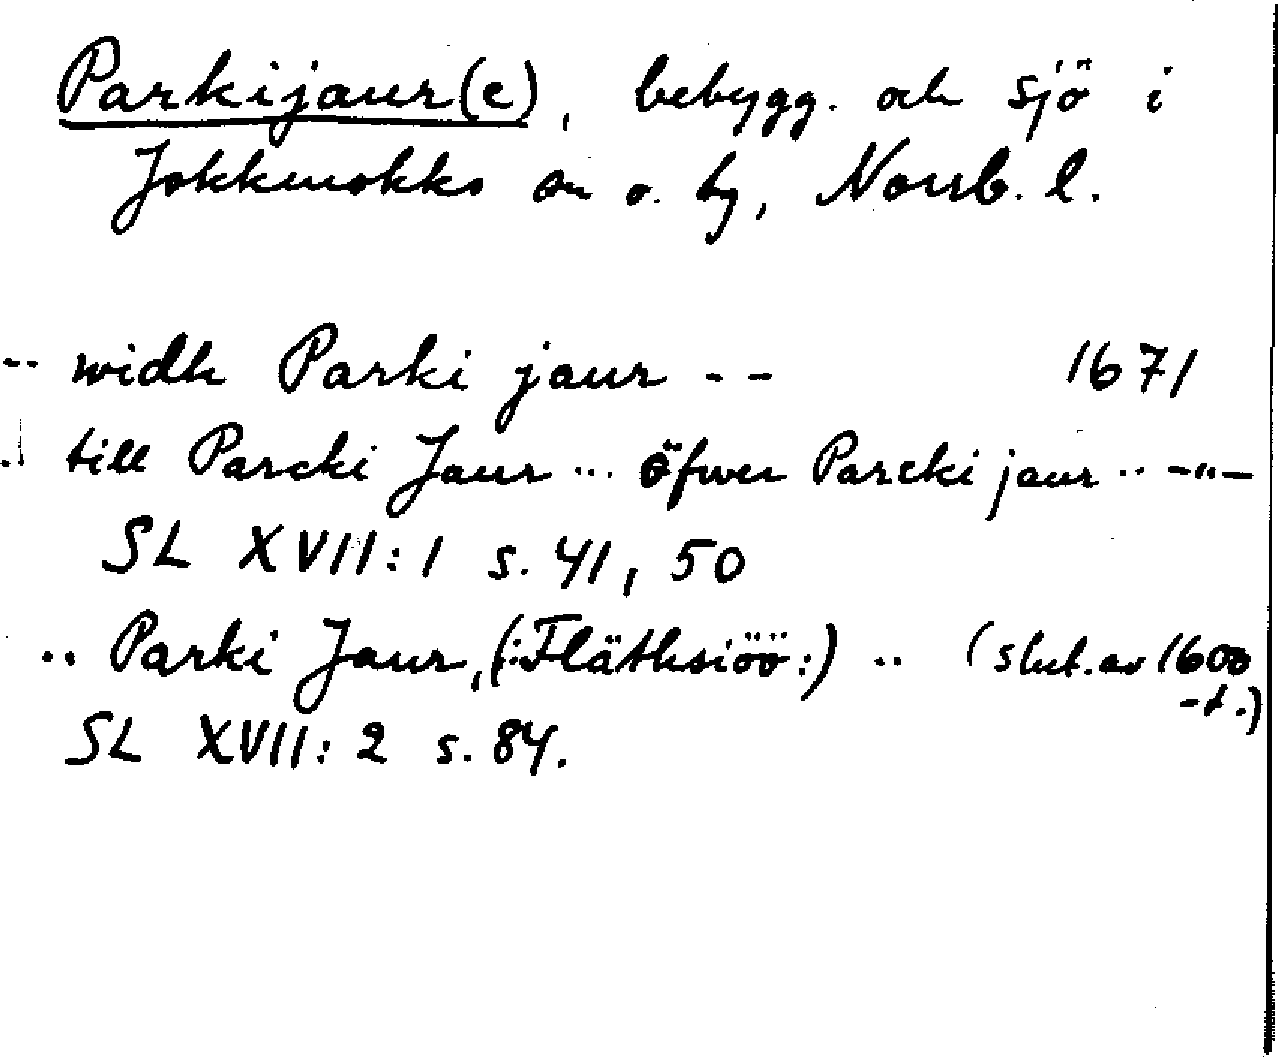 Parkijaur(e), bebygg. och sjö i
Jokkmokks sn o. tg, Norrb. l.
-- widh Parki jaur -- 1671
.. till Parcki Jaur ... öfwer Parcki jaur .. -"-
SL XVII:1 s. 41, 50
.. Parki Jaur, (:Fläthsiöö:) .. (slut. av 1600
-t.)
SL XVII:2 s. 84.